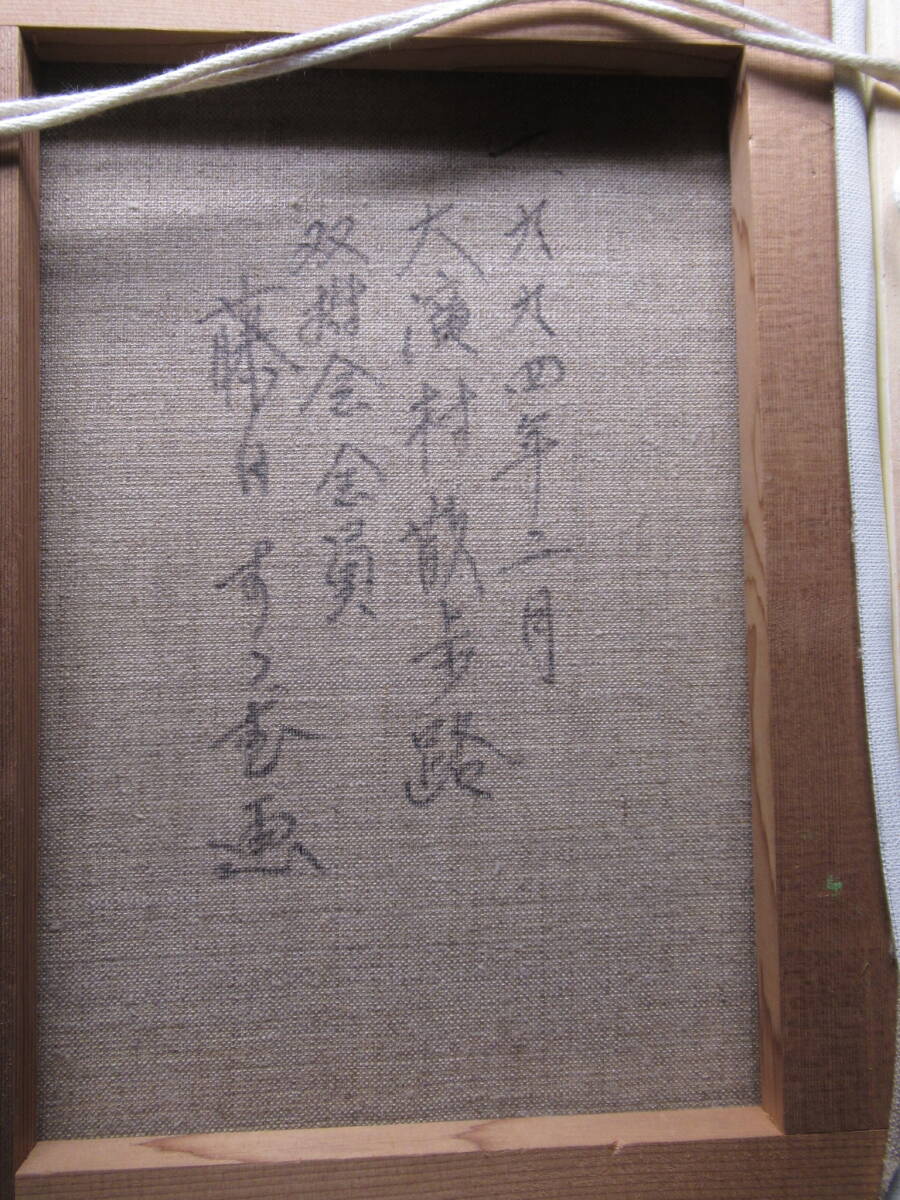 一九九四年二月
大濱村散歩路
双樹会会員
藤田すづゑ画